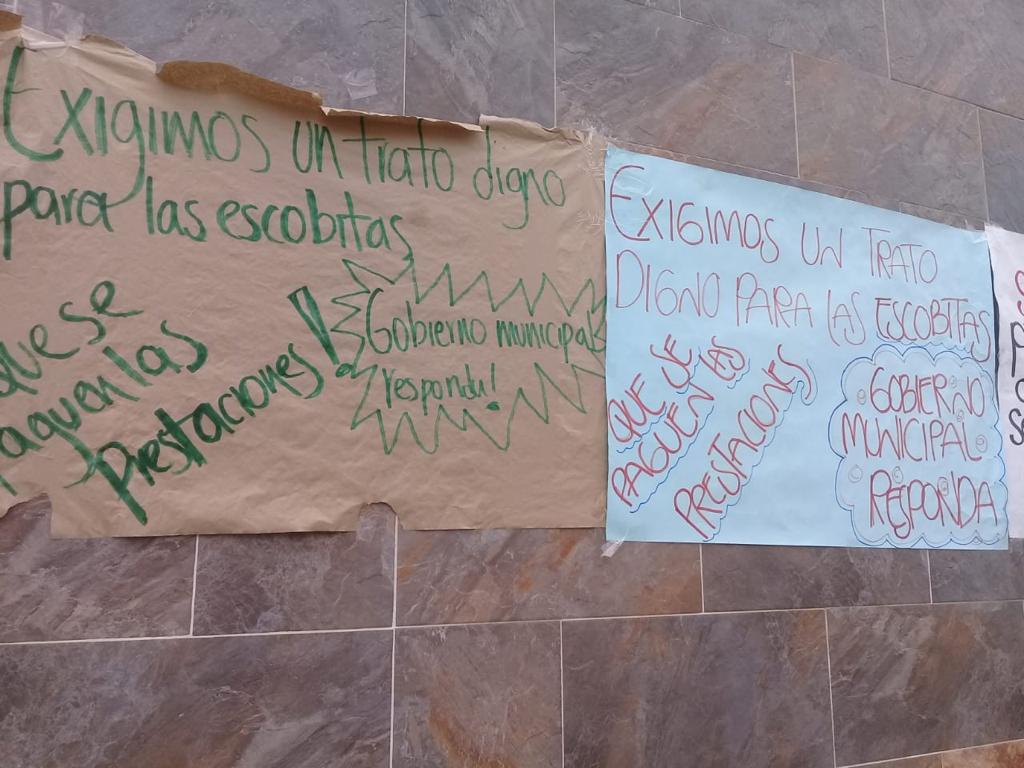 Exigimos un trato digno
para las escobitas
que se
paguen las
prestaciones!
Gobierno municipal
responda!
EXIGIMOS UN TRATO
DIGNO PARA LAS ESCOBITAS
QUE SE
PAGUEN LAS
PRESTACIONES
GOBIERNO
MUNICIPAL
RESPONDA